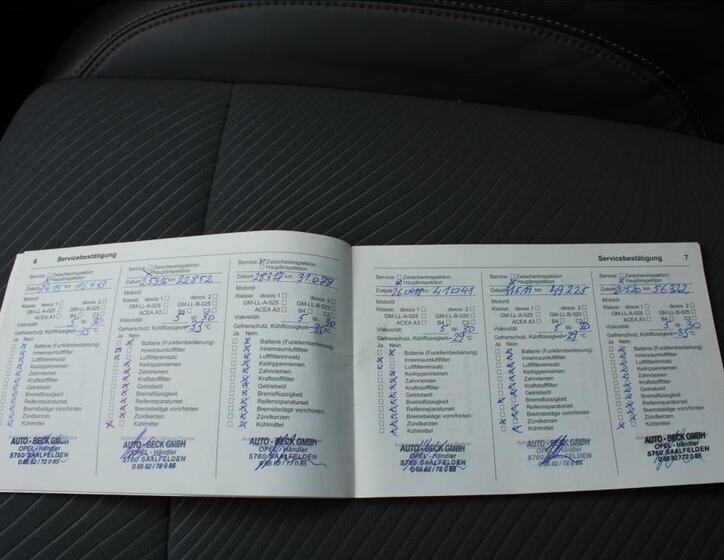 6 Servicebestätigung
Service: Zwischeninspektion
Hauptinspektion
Datum km
Motoröl
Klasse: dexos 1 dexos 2
GM-LL-A-025 GM-LL-B-025
ACEA A3 B4 C3
Viskosität: 5 W- 30
Gefrierschutz, Kühlflüssigkeit
Ja Nein
Batterie (Funkfernbedienung)
Innenraumluftfilter
Luftfiltereinsatz
Keilrippenriemen
Zahnriemen
Kraftstofffilter
Getriebeöl
Bremsflüssigkeit
Reifenreparaturset
Bremsbeläge vorn/hinten
Zündkerzen
Kühlmittel
AUTO-BECK GMBH
OPEL-Händler
5760 SAALFELDEN
0 65 82 / 72 0 85
Service: Zwischeninspektion
Hauptinspektion
Datum km 22.852
Motoröl
Klasse: dexos 1 dexos 2
GM-LL-A-025 GM-LL-B-025
ACEA A3 B4 C3
Viskosität: 5 W- 30
Gefrierschutz, Kühlflüssigkeit -33 °C
Ja Nein
Batterie (Funkfernbedienung)
Innenraumluftfilter
Luftfiltereinsatz
Keilrippenriemen
Zahnriemen
Kraftstofffilter
Getriebeöl
Bremsflüssigkeit
Reifenreparaturset
Bremsbeläge vorn/hinten
Zündkerzen
Kühlmittel
AUTO-BECK GMBH
OPEL-Händler
5760 SAALFELDEN
0 65 82 / 72 0 85
Service: Zwischeninspektion
Hauptinspektion
Datum km
Motoröl
Klasse: dexos 1 dexos 2
GM-LL-A-025 GM-LL-B-025
ACEA A3 B4 C3
Viskosität: 5 W- 30
Gefrierschutz, Kühlflüssigkeit
Ja Nein
Batterie (Funkfernbedienung)
Innenraumluftfilter
Luftfiltereinsatz
Keilrippenriemen
Zahnriemen
Kraftstofffilter
Getriebeöl
Bremsflüssigkeit
Reifenreparaturset
Bremsbeläge vorn/hinten
Zündkerzen
Kühlmittel
AUTO-BECK GMBH
OPEL-Händler
5760 SAALFELDEN
0 65 82 / 72 0 85
Servicebestätigung 7
Service: Zwischeninspektion
Hauptinspektion
Datum km 41041
Motoröl
Klasse: dexos 1 dexos 2
GM-LL-A-025 GM-LL-B-025
ACEA A3 B4 C3
Viskosität: 5 W- 30
Gefrierschutz, Kühlflüssigkeit -29 °C
Ja Nein
Batterie (Funkfernbedienung)
Innenraumluftfilter
Luftfiltereinsatz
Keilrippenriemen
Zahnriemen
Kraftstofffilter
Getriebeöl
Bremsflüssigkeit
Reifenreparaturset
Bremsbeläge vorn/hinten
Zündkerzen
Kühlmittel
AUTO-BECK GMBH
OPEL-Händler
5760 SAALFELDEN
0 65 82 / 72 0 85
Service: Zwischeninspektion
Hauptinspektion
Datum km 49225
Motoröl
Klasse: dexos 1 dexos 2
GM-LL-A-025 GM-LL-B-025
ACEA A3 B4 C3
Viskosität: 5 W- 30
Gefrierschutz, Kühlflüssigkeit -29 °C
Ja Nein
Batterie (Funkfernbedienung)
Innenraumluftfilter
Luftfiltereinsatz
Keilrippenriemen
Zahnriemen
Kraftstofffilter
Getriebeöl
Bremsflüssigkeit
Reifenreparaturset
Bremsbeläge vorn/hinten
Zündkerzen
Kühlmittel
AUTO-BECK GMBH
OPEL-Händler
5760 SAALFELDEN
0 65 82 / 72 0 85
Service: Zwischeninspektion
Hauptinspektion
Datum km 56322
Motoröl
Klasse: dexos 1 dexos 2
GM-LL-A-025 GM-LL-B-025
ACEA A3 B4 C3
Viskosität: 5 W- 30
Gefrierschutz, Kühlflüssigkeit -35 °C
Ja Nein
Batterie (Funkfernbedienung)
Innenraumluftfilter
Luftfiltereinsatz
Keilrippenriemen
Zahnriemen
Kraftstofffilter
Getriebeöl
Bremsflüssigkeit
Reifenreparaturset
Bremsbeläge vorn/hinten
Zündkerzen
Kühlmittel
AUTO-BECK GMBH
OPEL-Händler
5760 SAALFELDEN
0 65 82 / 72 0 85